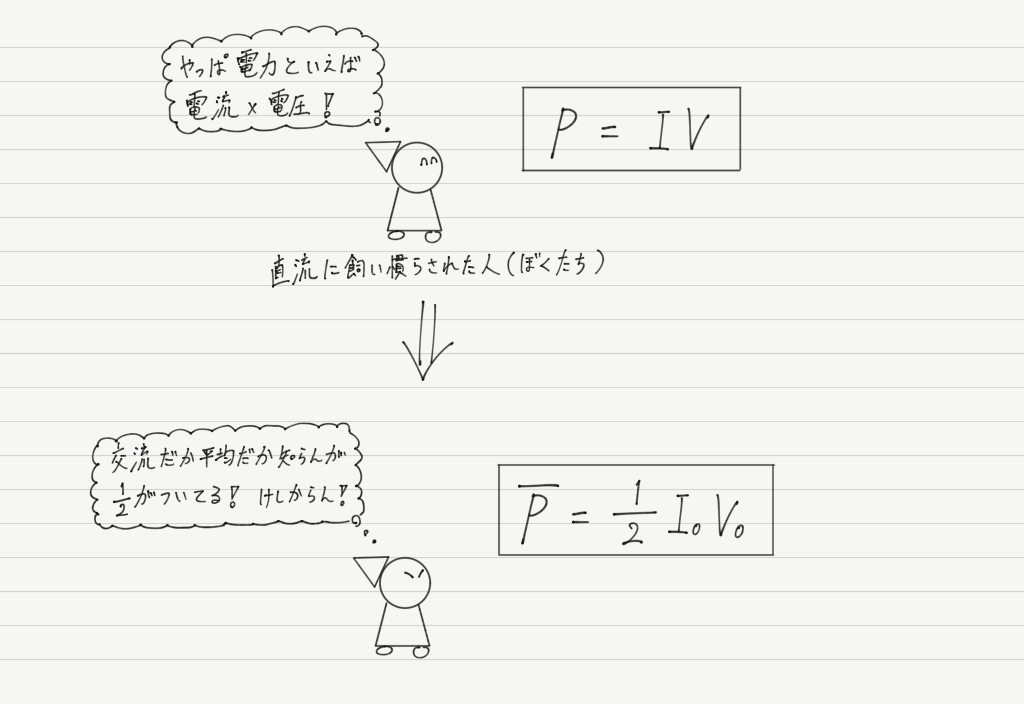 やっぱ電力といえば
電流×電圧!
P = IV
直流に飼い慣らされた人(ぼくたち)
交流だか平均だか知らんが
1/2がついてる! けしからん!
P̅ = 1/2 I₀V₀